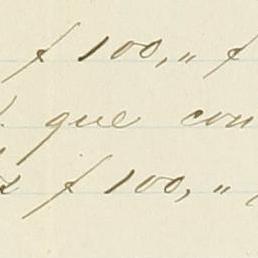 f 100,„ f
que con
f 100,„